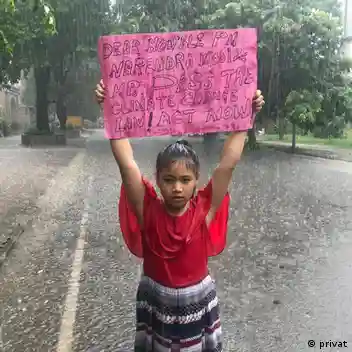 DEAR MR
NARENDRA MODI &
MPs PASS THE
CLIMATE CHANGE
LAW! ACT NOW!
© privat